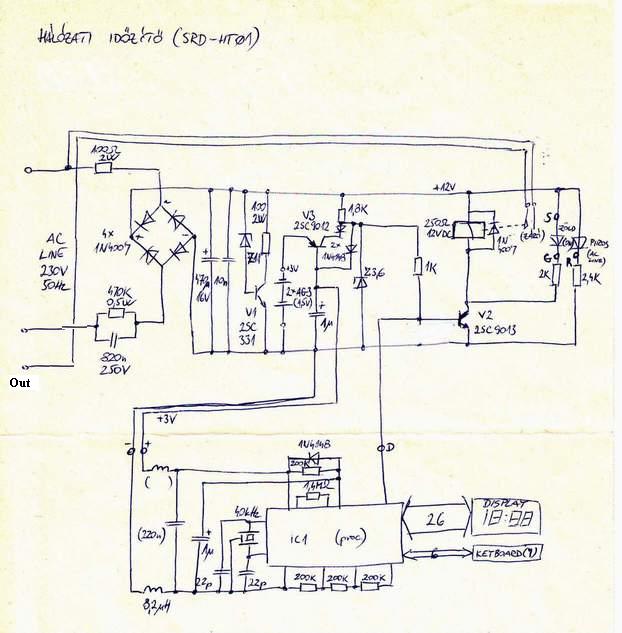 HÁLÓZATI IDŐZÍTŐ (SRD-HT01)
100Ω
2W
4×
1N4007
AC
LINE
230V
50Hz
470K
0,5W
820n
250V
Out
470µ
16V
10n
100
2W
V1
2SC
331
V3
2SC9012
+3V
2×AG3
(1,5V)
1,8K
2×
1N4148
Z3,6
1µ
1K
+12V
250Ω
12VDC
1N
4007
(ZÁRÓ)
S
ZÖLD
G
2K
PIROS
(AC
LINE)
R
2,4K
V2
2SC9013
+3V
- +
D
( )
(220n)
1µ
8,2µH
22p
22p
1N4148
200K
1,4MΩ
IC1 (proc)
200K 200K 200K
26
DISPLAY
18:88
6
KEYBOARD(9)